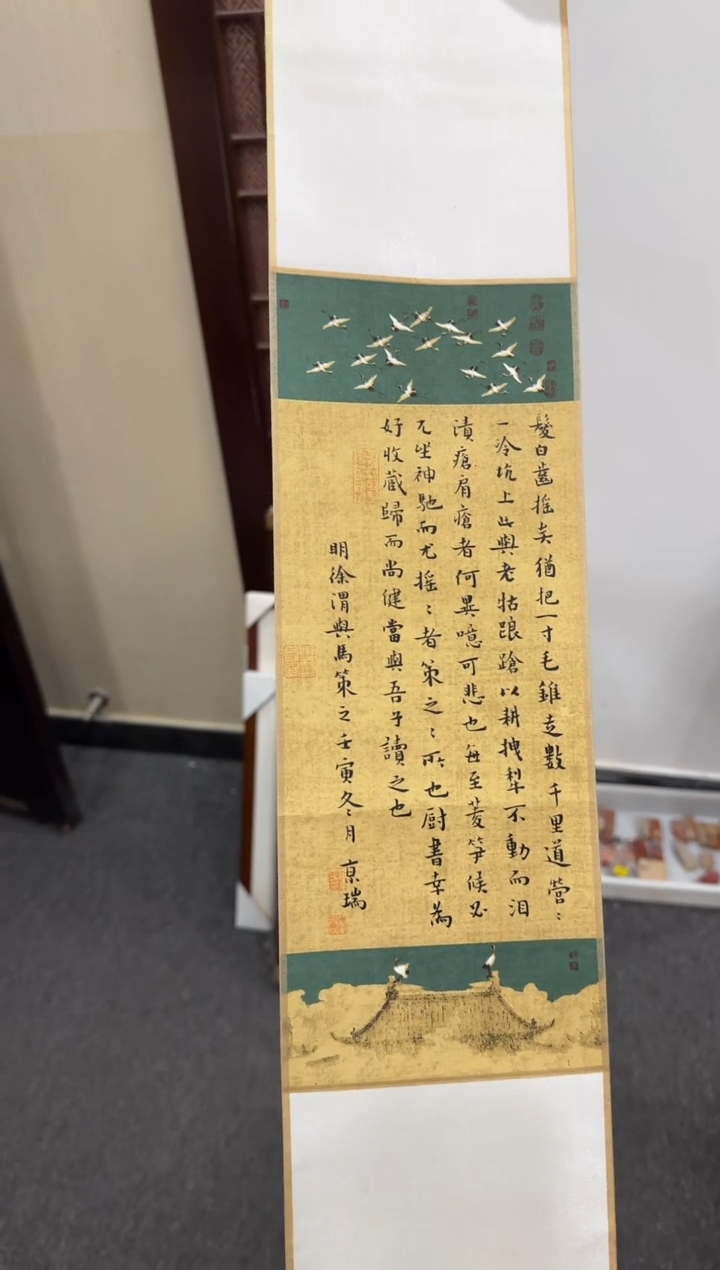 髮白齒搖矣猶把一寸毛錐走數千里道營〻
一冷坑上此與老牯踉蹌以耕拽犁不動而泪
漬瘡肩瘡者何異噫可悲也每至菱笋候必
兀坐神馳而尤搖〻者策之〻所也厨書幸為
好收藏歸而尚健當與吾子讀之也
明徐渭與馬策之壬寅冬月京瑞